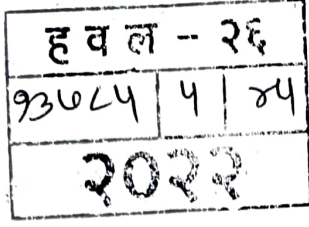 हवल - २६
१३७८५ ५ २५
२०२२